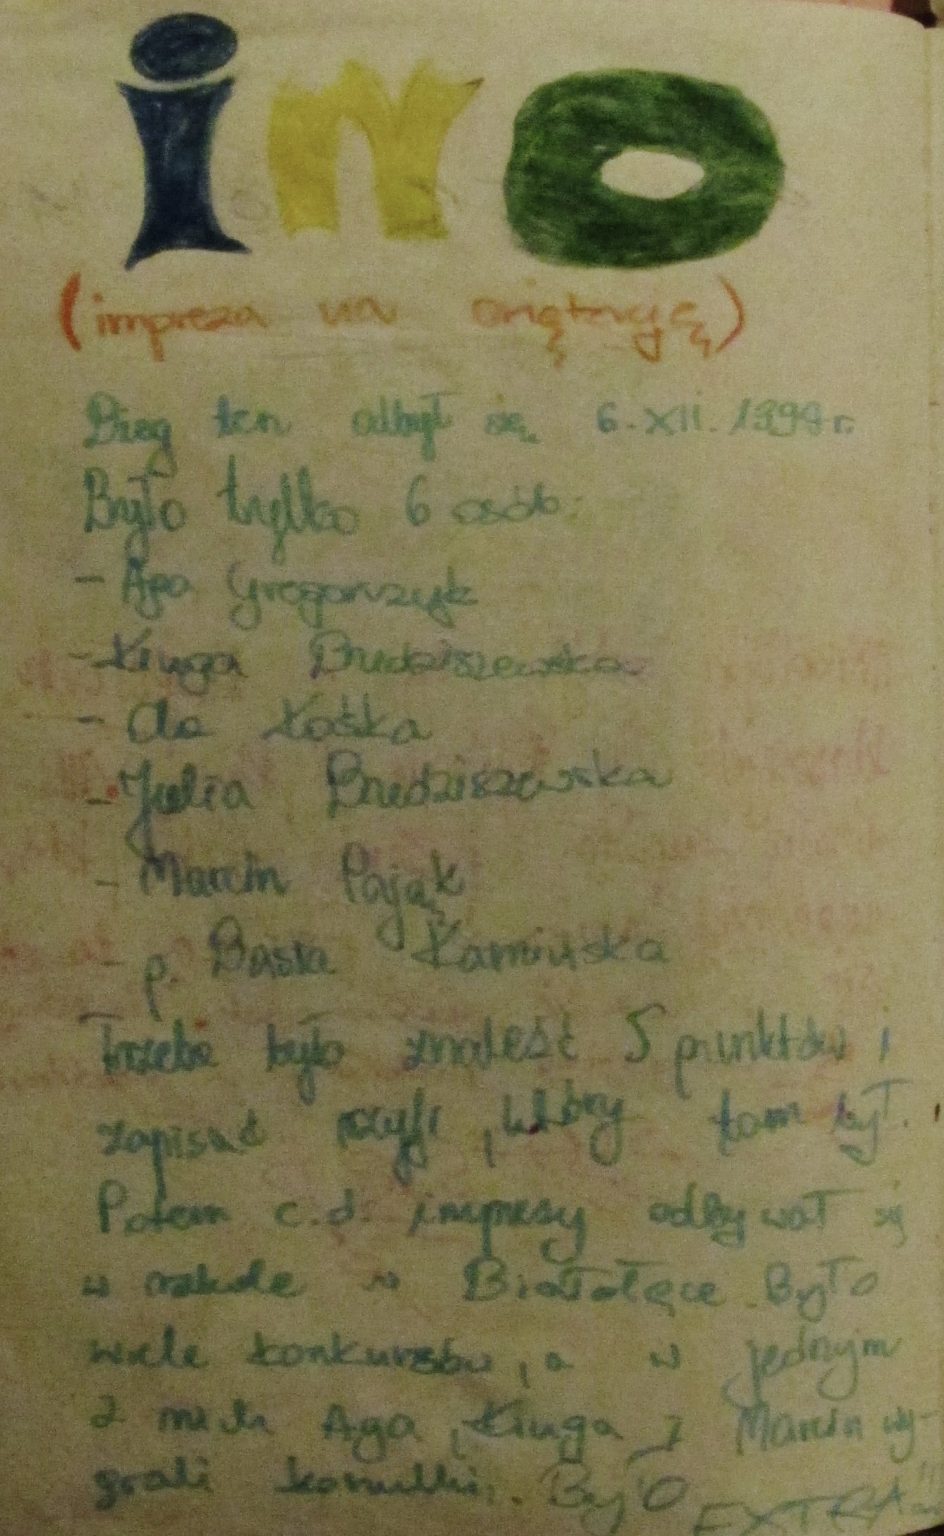 ino
(impreza na oriętację)
Bieg ten odbył się 6.XII.1998r.
Było tylko 6 osób:
- Aga Gregorczyk
- Kinga Brudziszewska
- Ola Kośka
- Julia Brudziszewska
- Marcin Pająk
- p. Basia Kamińska
Trzeba było znaleść 5 punktów i
zapisać szyfr, który tam był.
Potem c.d. imprezy odbywał się
w szkole w Białołęce. Było
wiele konkursów, a w jednym
z nich Aga, Kinga i Marcin wy-
grali koszulki. Było EXTRA